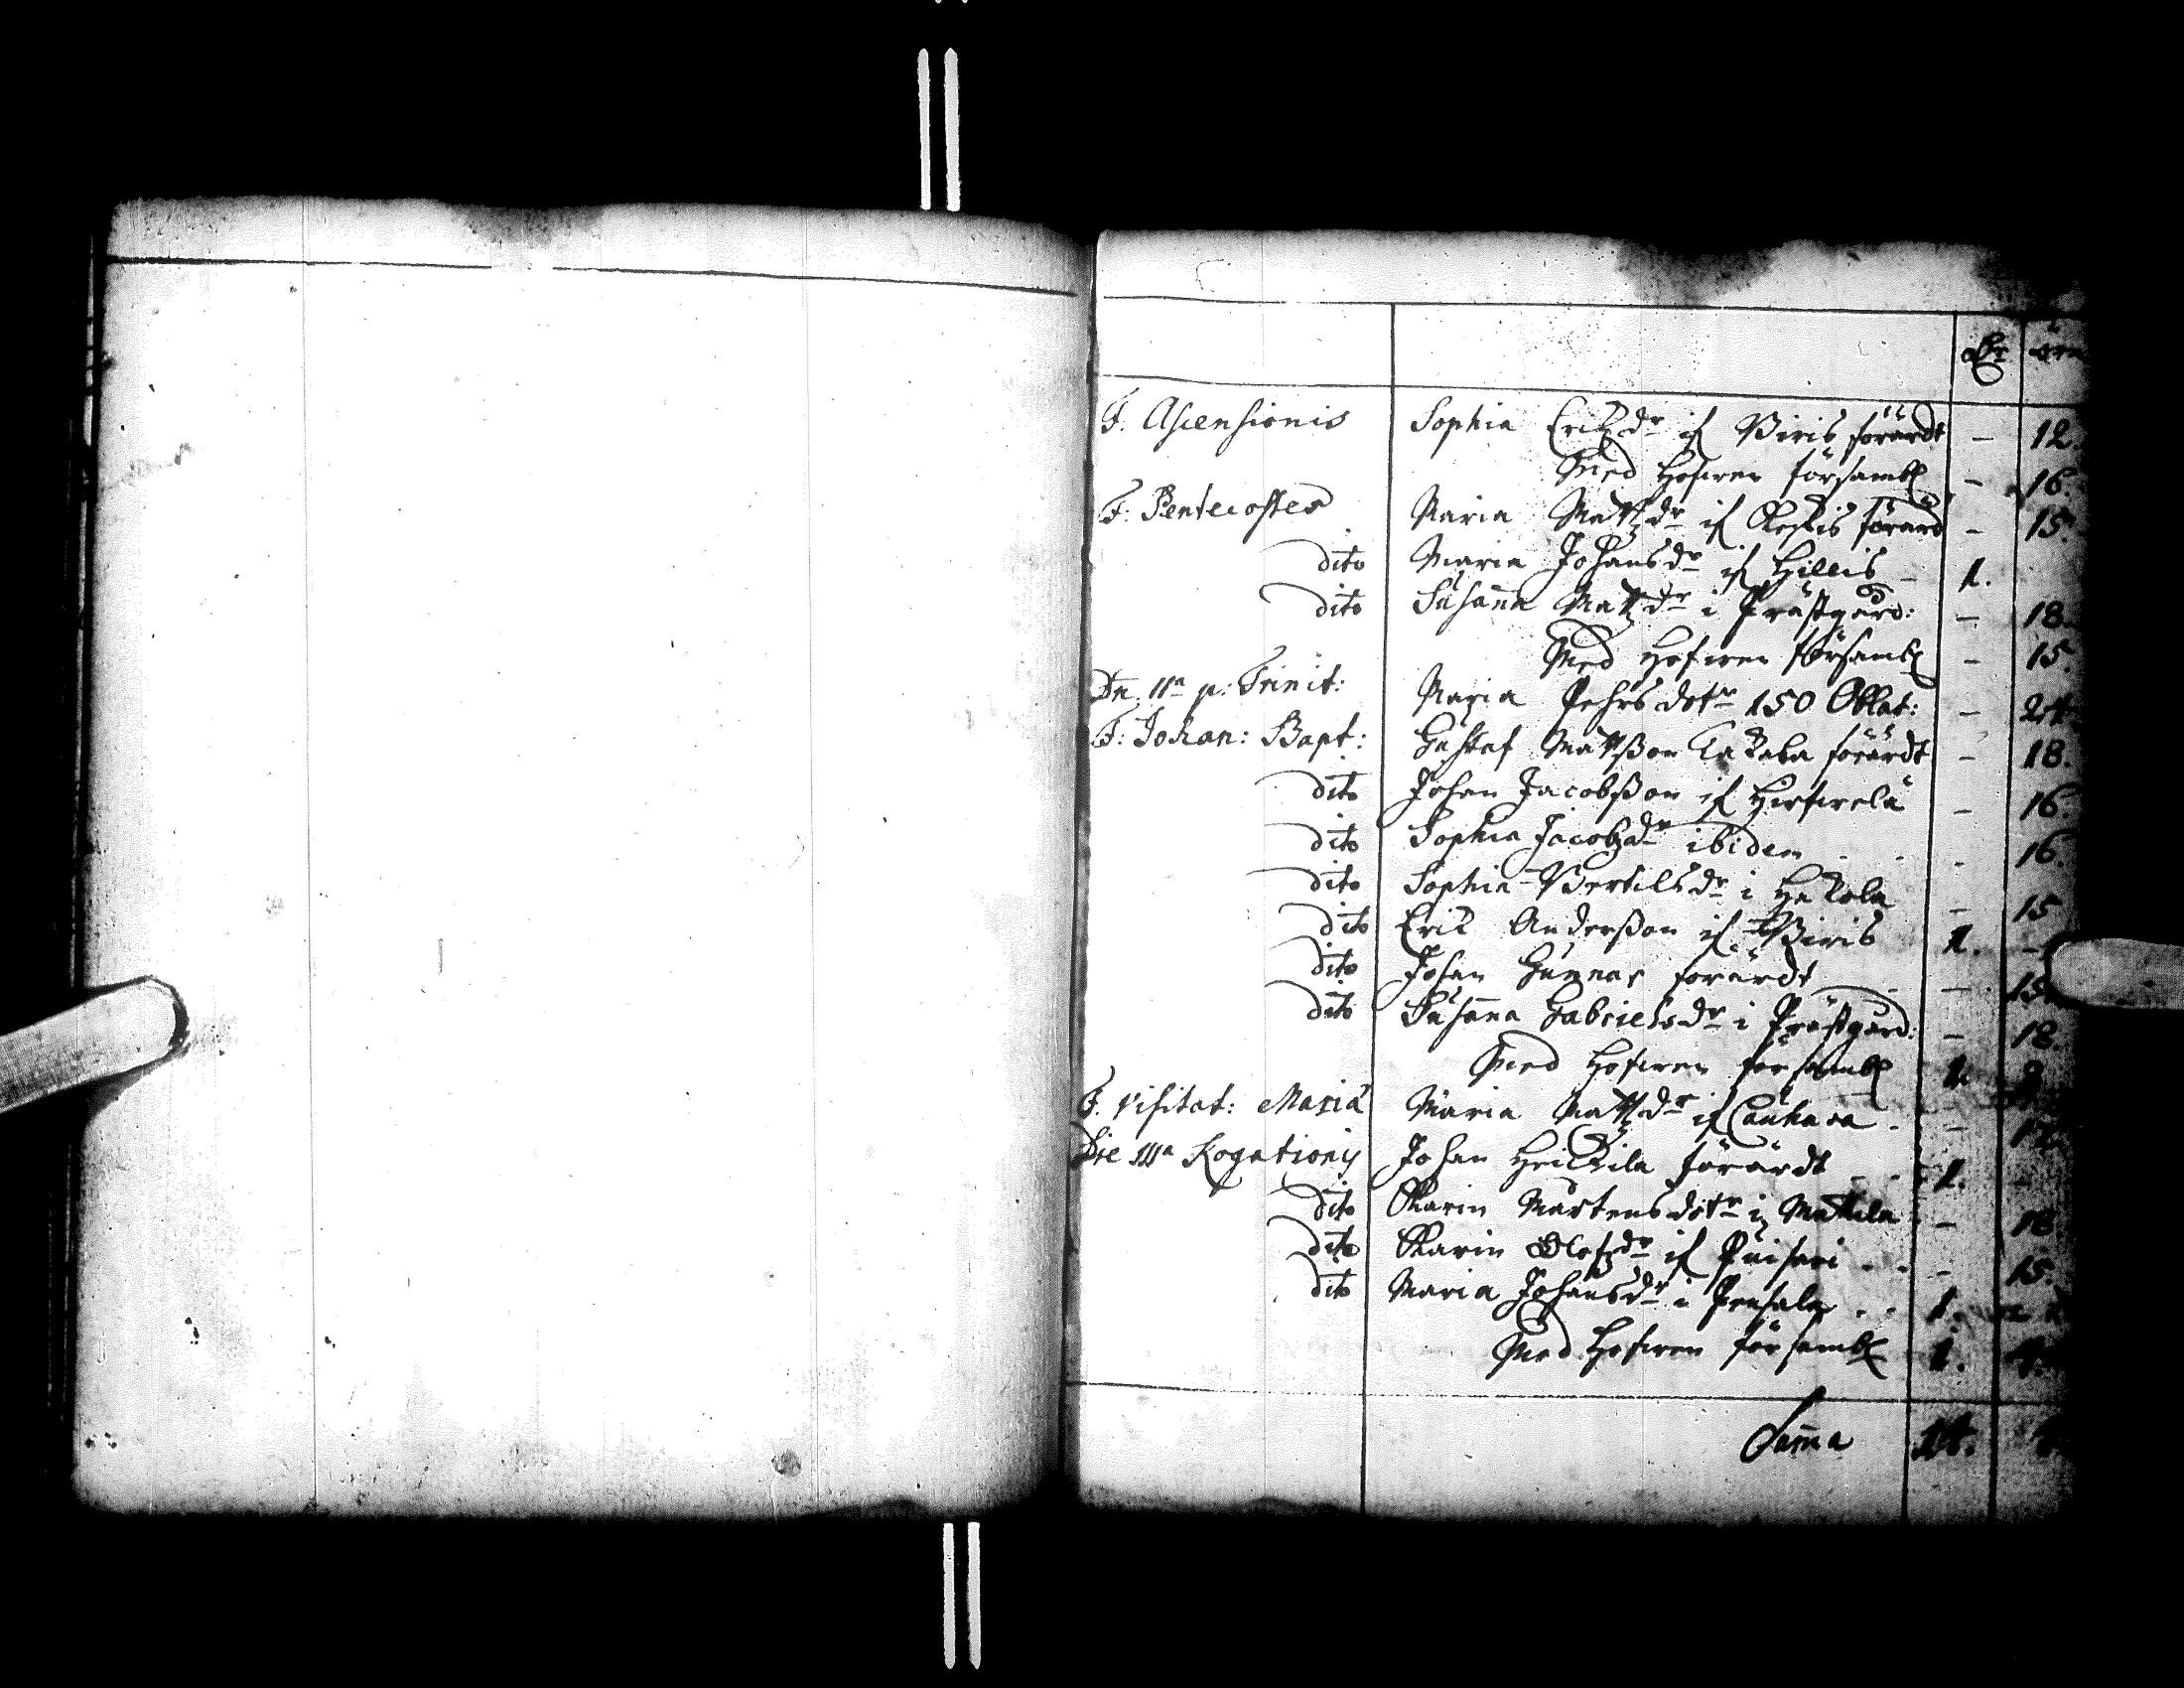 Dr öre
F. Ascensionis Sophia Erichzdr if Biris förärdt – 12.
Med Hofwen försambl – 16.
F: Pentecostes Maria Mattzdr if förärd – 15.
dito Maria Johansdr if Hillis – 1.
dito Susanna Mattzdr i Prästgård: – 18.
Med Hofwen försambl – 15.
Dn IIa p: Trinit: Maria Pehrsdotr 150 Oblat: – 24
F: Johan: Bapt: Gustaf Mattsson förärdt – 18.
dito Johan Jacobsson if – 16.
dito Sophia Jacobzdr ibidem – 16.
dito Sophia Bertilsdr i Hakola – 15
dito Erick Andersson if Biris 1. –
dito Johan Gumnas förärdt – 15.
dito Susanna Gabrielsdr i Prästgård: – 18.
Med Hofwen försambl 1.
F. Visitat: Mariä Maria Mattzdr if –
Die IIIa Rogationis Johan Heickila förärdt 1. –
dito Karin Mårtensdotr i Mattila – 18
dito Karin Olofzdr if – 15.
dito Maria Johansdr i 1.
Med Hofwen försambl 1. 4.
Sum̅a